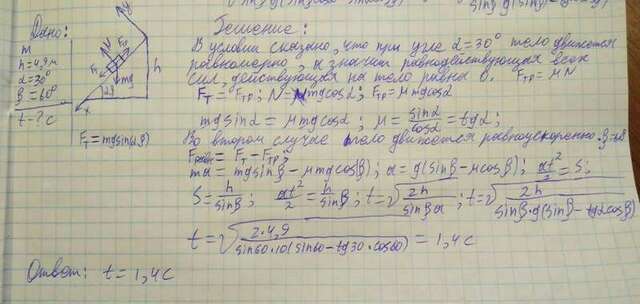 Дано:
m
h = 4,9м
α = 30°
β = 60°
t - ?c
y
N
Fтр
Fт
mg
h
x
Fт = mgsin(α,β)
Решение:
В условии сказано, что при угле α = 30° тело движется
равномерно, а значит равнодействующая всех
сил, действующая на тело равна 0. Fтр = μN
Fт = Fтр; N = mgcosα; Fтр = μmgcosα
mgsinα = μmgcosα; μ = sinα/cosα = tgα;
Во втором случае тело движется равноускоренно. β=60
Fравн = Fт - Fтр;
ma = mgsinβ - μmgcosβ; a = g(sinβ - μcosβ); at²/2 = S;
S = h/sinβ; at²/2 = h/sinβ; t = √(2h/sinβa); t = √(2h/sinβ·g(sinβ - tgαcosβ))
t = √(2·4,9/sin60·10(sin60 - tg30·cos60)) = 1,4c
Ответ: t = 1,4c